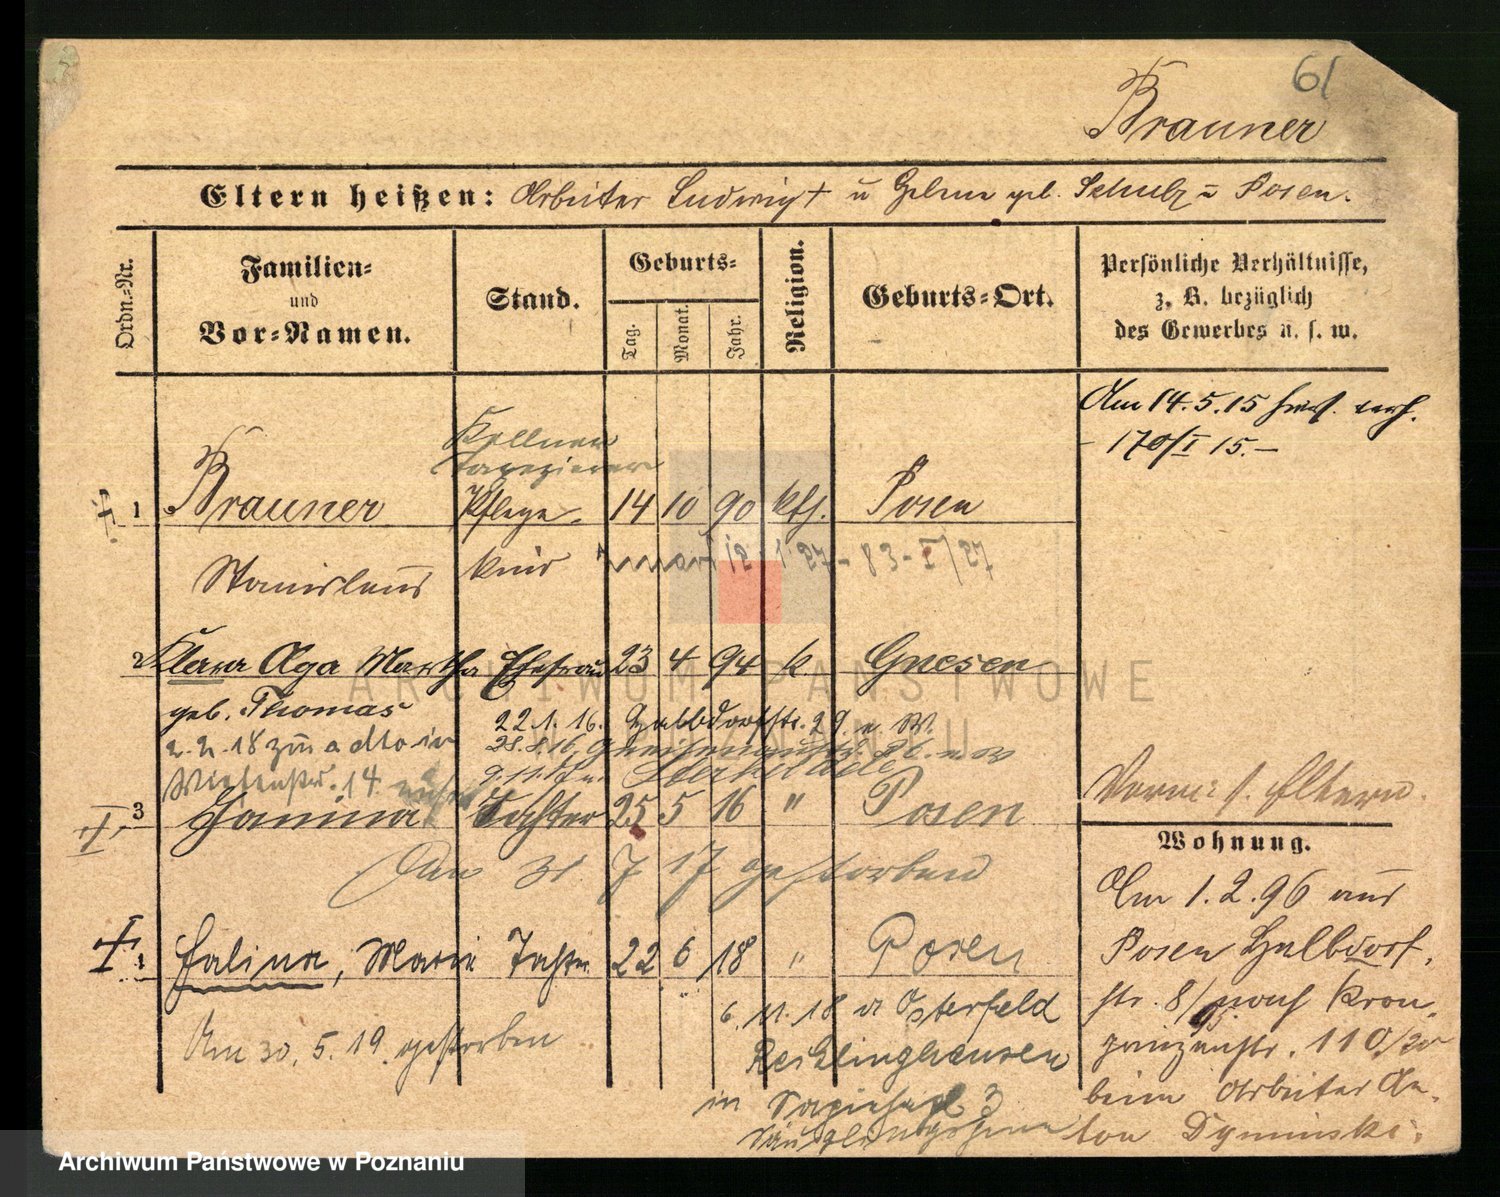 61
Brauner
Eltern heißen: Arbeiter Ludwig † u geb. Schulz Posen.
Ordn.-Nr.
Familien-
und
Vor-Namen.
Stand.
Geburts-
Tag.
Monat.
Jahr.
Religion.
Geburts-Ort.
Persönliche Verhältnisse,
z. B. bezüglich
des Gewerbes u. s. w.
Am 14.5.15
- 170/I 15.-
Kellner
Tapezierer
1 Brauner Pflege- 14 10 90 kth. Posen
Stanislaus kind
12.1.27 - 83-I/27
2 Klara Olga Martha Ehefrau 23 4 94 k. Gnesen
geb. Thomas
22.1.16. Halbdorfstr. 29.
2.2.18 in
Wiesenstr. 14
3 Janina Tochter 25 5 16 " Posen
Am 31 7 17 gestorben
Halina, Maria Tochter 22 6 18 " Posen
Am 30.5.19 gestorben
6.11.18 Osterfeld
Recklinghausen
in
Vorm: s. Eltern.
Wohnung.
Am 1.2.96 aus
Posen Halbdorf-
str. 8/ nach Kron-
prinzenstr. 110/
beim Arbeiter An-
ton Dyminski.
ARCHIWUM PAŃSTWOWE
W POZNANIU
Archiwum Państwowe w Poznaniu